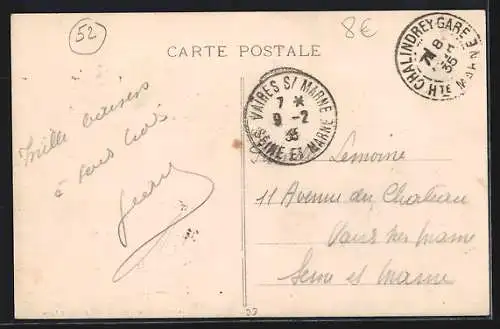 52
8€
CARTE POSTALE
CHALINDREY-GARE
8
35
HTE MARNE
VAIRES S/ MARNE
7 *
9 -2
35
SEINE ET MARNE
Mille baisers
à tous trois
Lemoine
11 Avenue du Chateau
Vaires sur marne
Seine et marne